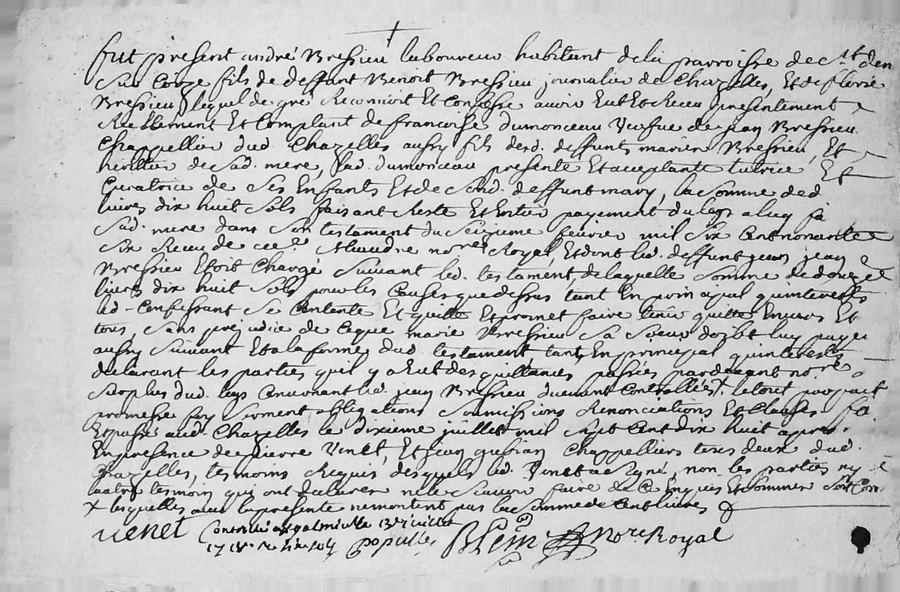 fut présent andré Bressieu laboureur habitant de la parroisse de St den
sur Coize fils de deffunt Benoit Bressieu journalier de Chazelles, Et de fleurie
Bressieu lequel de gré Reconnoit Et Confesse avoir Eut Et Receu présentement
Réellement Et Comptant de francoise dumonceau Veufve de jean Bressieu
Chappellier dud. Chazelles aussy fils desd. deffunts mariés Bressieu, Et
héritier de sad. mere, lad. dumonceau présente Et acceptante tutrice Et
Curatrice de ses Enfants Et de sond. deffunt mary, la somme de d
livres dix huit sols faisant Reste Et Entier payement du legs a luy fa
sad. mere dans son testament du seizieme feuvrier mil six Cent nonante
six Receu de Alexandre nore Royal, Et dont led. deffunt jean
Bressieu Etoit Chargé suivant led. testament, de laquelle somme de douze
livres dix huit sols pour les Causes que dessus tant En principal qu'interests
led. Confessant se Contente Et quitte Et promet faire tenir quitte Envers Et
tous, sans préjudice de Ceque marie Bressieu sa soeur doibt luy payer
aussy suivant Et a la forme dud. testament tant En principal qu'interests
déclarant les parties qu'il y a Eut des quittances passées pardevant nores
surplus dud. legs Concernant led. jean Bressieu duement Controllées x. le tout par pact
promesse foy serment obligations soumissions Renonciations Et Clauses fa
Et passé aud. Chazelles le dixieme juillet mil sept Cent dix huit apres
En présence de pierre Venet, Et jean Chappelliers tous deux dud.
Chazelles, tesmoins Requis desquels led. Venet a signé, non les parties ny
autre tesmoin qui ont déclarés ne le scavoir faire de Ce Enquis Et sommés Con
x lesquelles avec la présente ne montent pas la somme de Cent livres
Venet Controllé a le 13e juillet
nore Royal